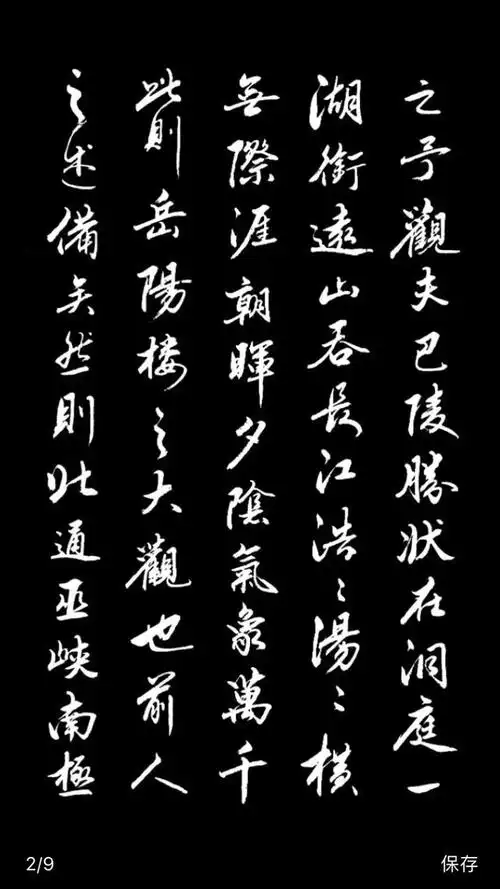 之予觀夫巴陵勝狀在洞庭一
湖銜遠山吞長江浩〻湯〻橫
無際涯朝暉夕陰氣象萬千
此則岳陽樓之大觀也前人
之述備矣然則北通巫峽南極
2/9
保存